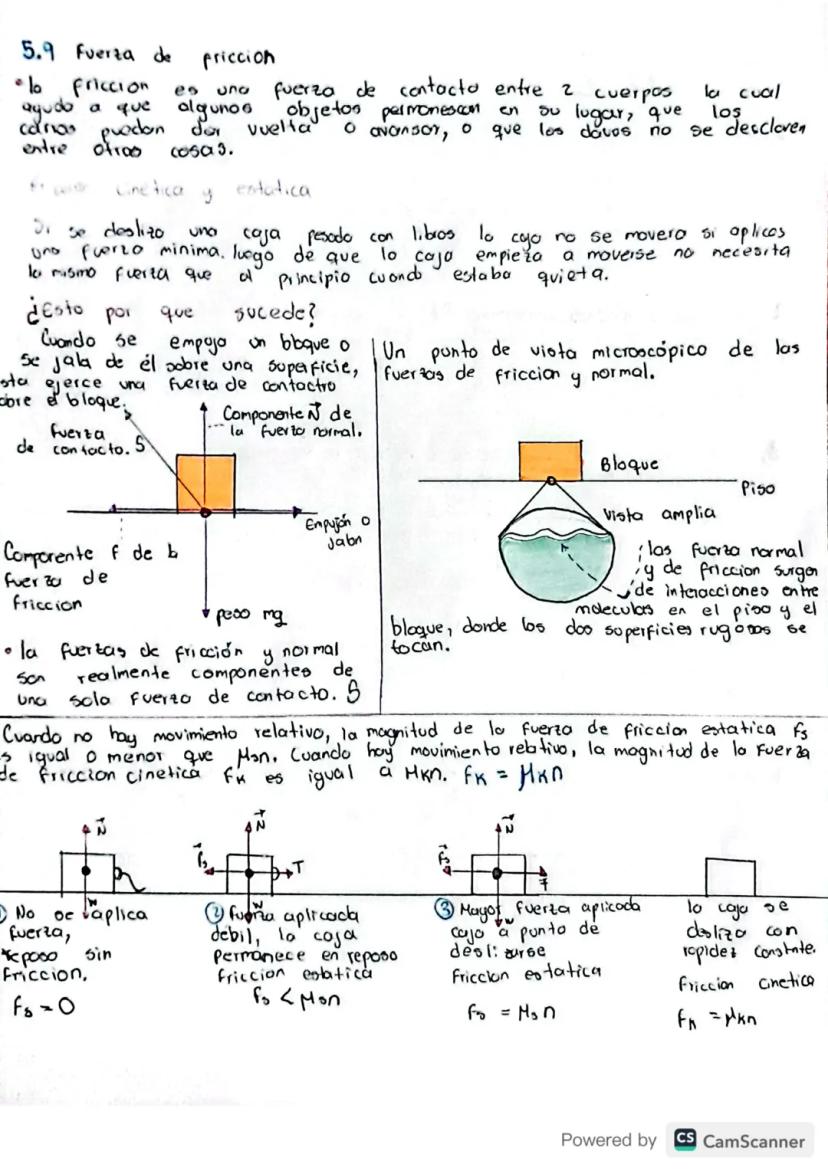 5.9 Fuerza de friccion
• la friccion es una fuerza de contacto entre 2 cuerpos la cual
ayuda a que algunos objetos permanescan en su lugar, que los
carros puedan dar vuelta o avansar, o que los clavos no se desclaven
entre otras cosas.
cinetica y estatica
Si se desliza una caja pesada con libros la caja no se movera si aplicas
una fuerza minima. luego de que la caja empieza a moverse no necesita
la misma fuerza que al principio cuando estaba quieta.
¿Esto por que sucede?
Cuando se empuja un bloque o
se jala de él sobre una superficie,
sta ejerce una fuerza de contactro
obre el bloque.
fuerza
de contacto. S
Componente N de
la fuerza normal.
Empujón o
Jalon
Componente f de b
fuerza de
friccion
peso mg
• la fuerzas de fricción y normal
son realmente componentes de
una sola fuerza de contacto. S
Un punto de vista microscópico de las
fuerzas de friccion y normal.
Bloque
Piso
Vista amplia
las fuerza normal
y de friccion surgen
de interacciones entre
moleculas en el piso y el
bloque, donde los dos superficies rugosas se
tocan.
Cuando no hay movimiento relativo, la magnitud de la fuerza de friccion estatica fs
s igual o menor que μsn. Cuando hay movimiento relativo, la magnitud de la fuerza
de friccion cinetica fk es igual a μkn. fk = μkn
N
N
fs
T
N
fs
F
① No se aplica
fuerza,
reposo sin
friccion.
fs = 0
w
② fuerza aplicada
debil, la caja
permanece en reposo
friccion estatica
fs < μsn
w
③ Mayor fuerza aplicada
caja a punto de
deslizarse
friccion estatica
fs = μsn
w
la caja se
desliza con
rapidez constante.
friccion cinetica
fk = μkn
Powered by CS CamScanner